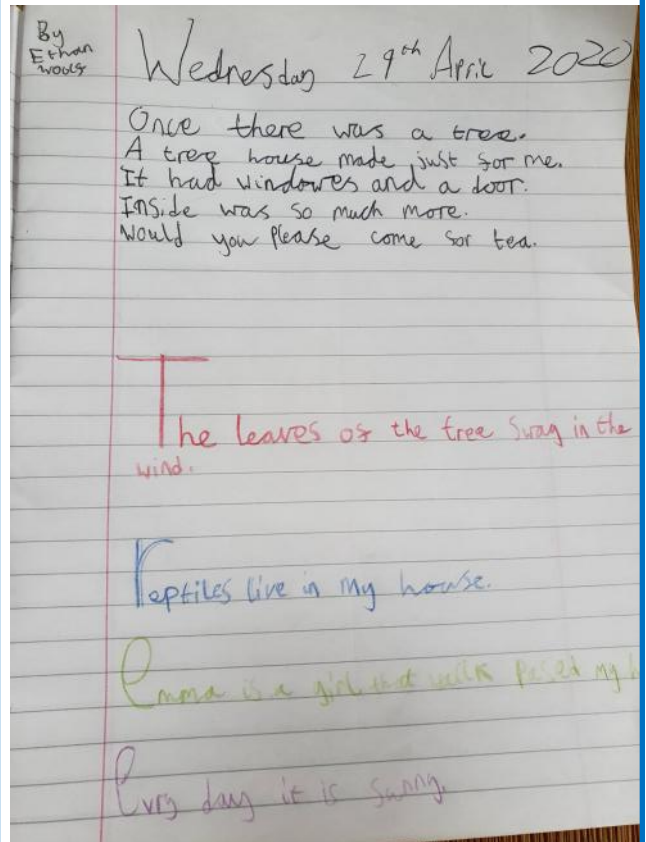 By
Ethan
Wednesday 29th April 2020
Once there was a tree.
A tree house made just for me.
It had windowes and a door.
Inside was so much more.
Would you please come for tea.
The leaves of the tree Sway in the
wind.
reptiles live in my house.
emma is a girl that walk pased my
Evry day it is sunny.